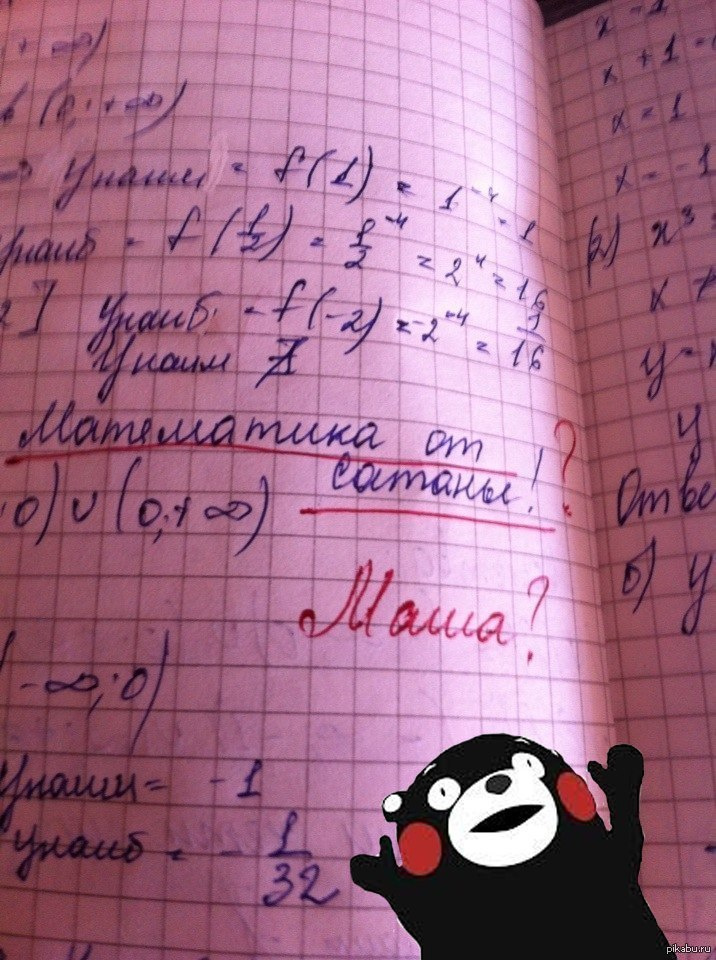 + ∞)
в (0; +∞)
=> Yнаим = f(1) = 1⁻⁴ = 1
Yнаиб = f(1/2) = 1/2⁻⁴ = 2⁴ = 16
2] Yнаиб = f(-2) = -2⁻⁴ = 1/16
Yнаим
Математика от
сатаны! ?
; 0) ∪ (0; + ∞)
Маша?
(-∞; 0)
Yнаим = -1
Yнаиб = - 1/32
x - 1
x + 1 =
x = 1
x = -1
2) x³ =
x ≠
y =
y
Отве
б) y
pikabu.ru